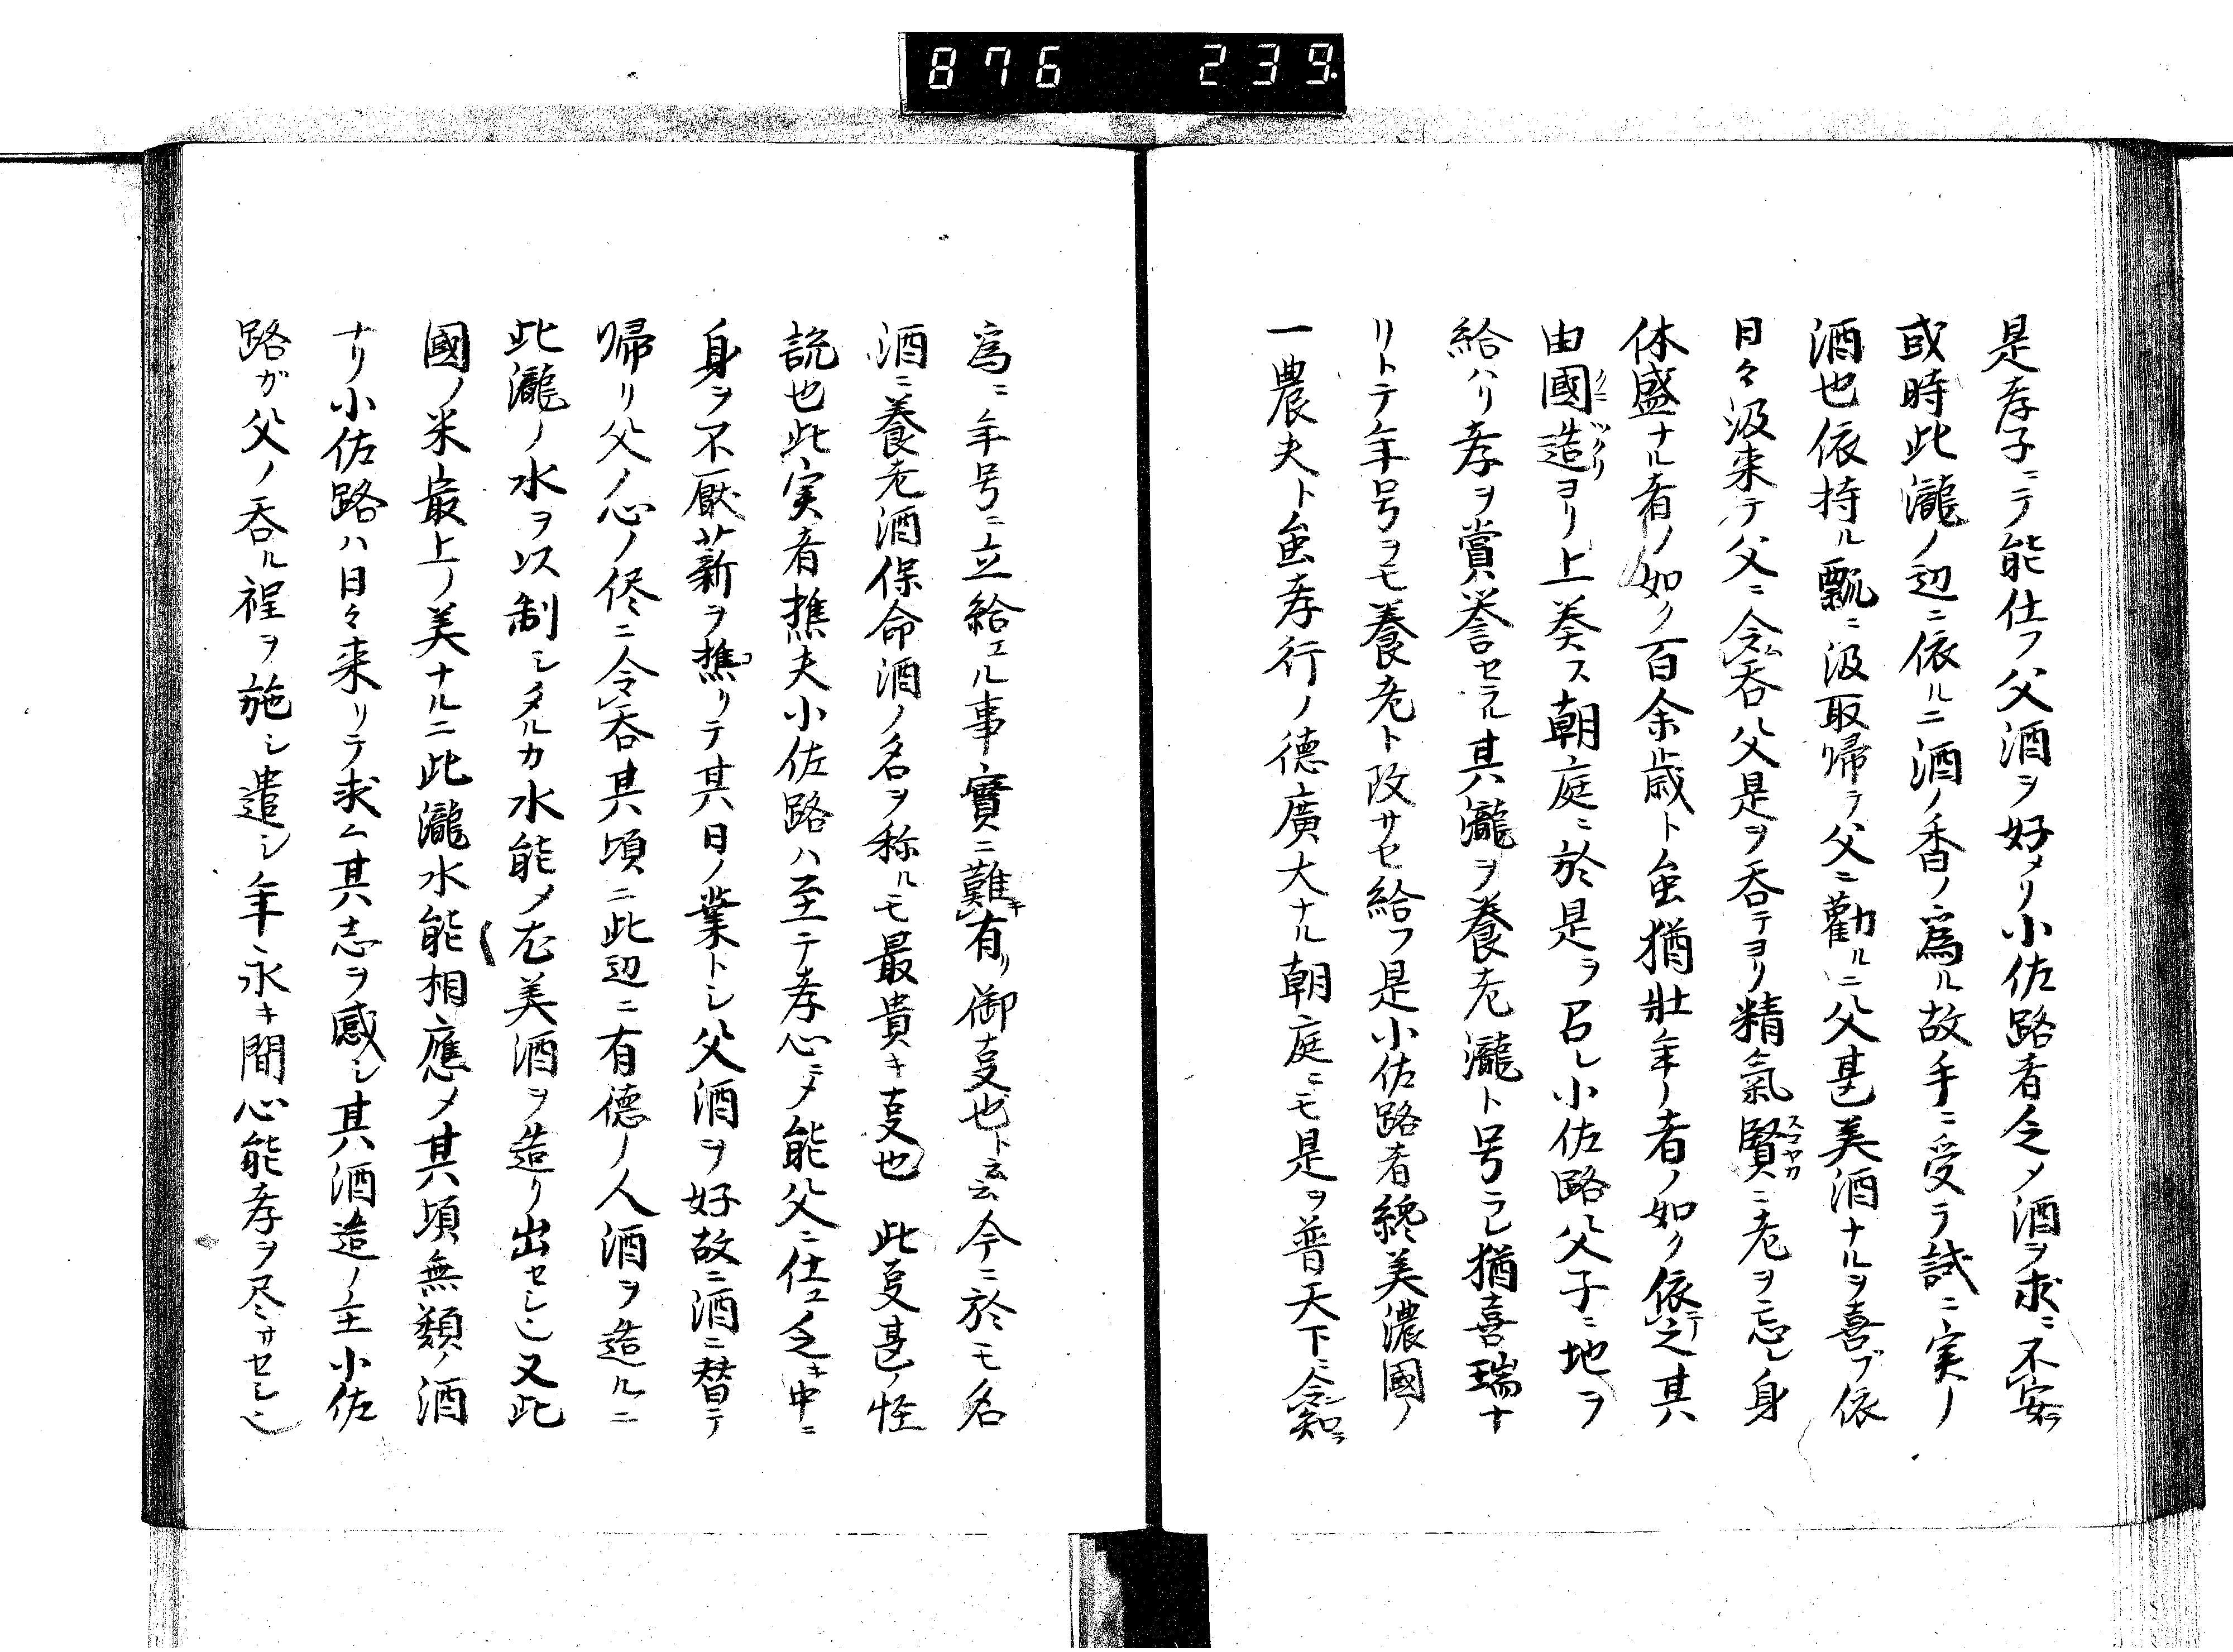 876 239
是孝子ニテ能仕フ父酒ヲ好メリ小佐路者乏メ酒ヲ求ニ不安ラ
或時此瀧ノ辺ニ依ルニ酒ノ香ノ爲ル故手ニ受テ試ニ実ノ
酒也依持ル瓢ニ汲取帰テ父ニ勸ルニ父甚美酒ナルヲ喜ブ依
日々汲来テ父ニ令呑父是ヲ呑テヨリ精氣賢スマヤカニ老ヲ忘レ身
休盛ナル者ノ如ク百余歳ト虽猶壯年ノ者ノ如ク依テ之其
由國クニ造ツクリヨリ上奏ス朝庭ニ於是ヲ召レ小佐路父子ニ地ヲ
給ハリ孝ヲ賞誉セラル其瀧ヲ養老瀧ト号ラレ猶喜瑞ナ
リトテ年号ヲモ養老ト改サセ給フ是小佐路者纔美濃國ノ
一農夫ト虽孝行ノ德廣大ナル朝庭ニモ是ヲ普天下ニ令知ラ
爲ニ年号ニ立給エル事實ニ難キ有リ御㕝也ト云云今ニ於モ名
酒ニ養老酒保命酒ノ名ヲ称ルモ最貴キ㕝也 此㕝甚ノ怪
説也此実者樵夫小佐路ハ至テ孝心ニメ能父ニ仕エ乏キ中ニ
身ヲ不厭薪ヲ樵コリテ其日ノ業トシ父酒ヲ好故ニ酒ニ替テ
帰リ父ノ心ノ侭ニ令呑其頃ニ此辺ニ有德ノ人酒ヲ造ルニ
此瀧ノ水ヲ以制シタルカ水能メ尤美酒ヲ造リ出セシ也又此
國ノ米最上ノ美ナルニ此瀧水能相應メ其頃無類ノ酒
ナリ小佐路ハ日々来リテ求ム其志ヲ感シ其酒造ノ主小佐
路ガ父ノ呑ル程ヲ施シ遣シ年永キ間心能孝ヲ尽サセシ也